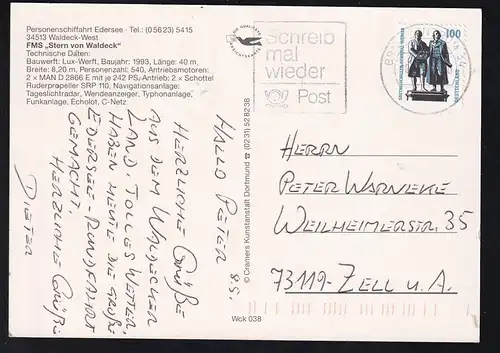 Personenschiffahrt Edersee - Tel.: (0 56 23) 54 15
34513 Waldeck-West
FMS „Stern von Waldeck"
Technische Daten:
Bauwerft: Lux-Werft, Baujahr: 1993, Länge: 40 m,
Breite: 8,20 m, Personenzahl: 540, Antriebsmotoren:
2 x MAN D 2866 E mit je 242 PS, Antrieb: 2 x Schottel
Ruderpropeller SRP 110, Navigationsanlage:
Tageslichtradar, Wendeanzeiger, Typhonanlage,
Funkanlage, Echolot, C-Netz.
HALLO PETER
HERZLICHE GRÜßE
AUS DEM WALDECKER
LAND. TOLLES WETTER,
HABEN HEUTE DIE GROßE
EDERSEE-RUNDFAHRT
GEMACHT.
HERZLICHE GRÜßE
DIETER
© Cramers Kunstanstalt Dortmund ☎ (0231) 52 82 38
Wck 038
Schreib
mal
wieder
Post
100
DEUTSCHLAND
HERRN
PETER WARNEKE
WEILHEIMERSTR. 35
73119-ZELL U.A.